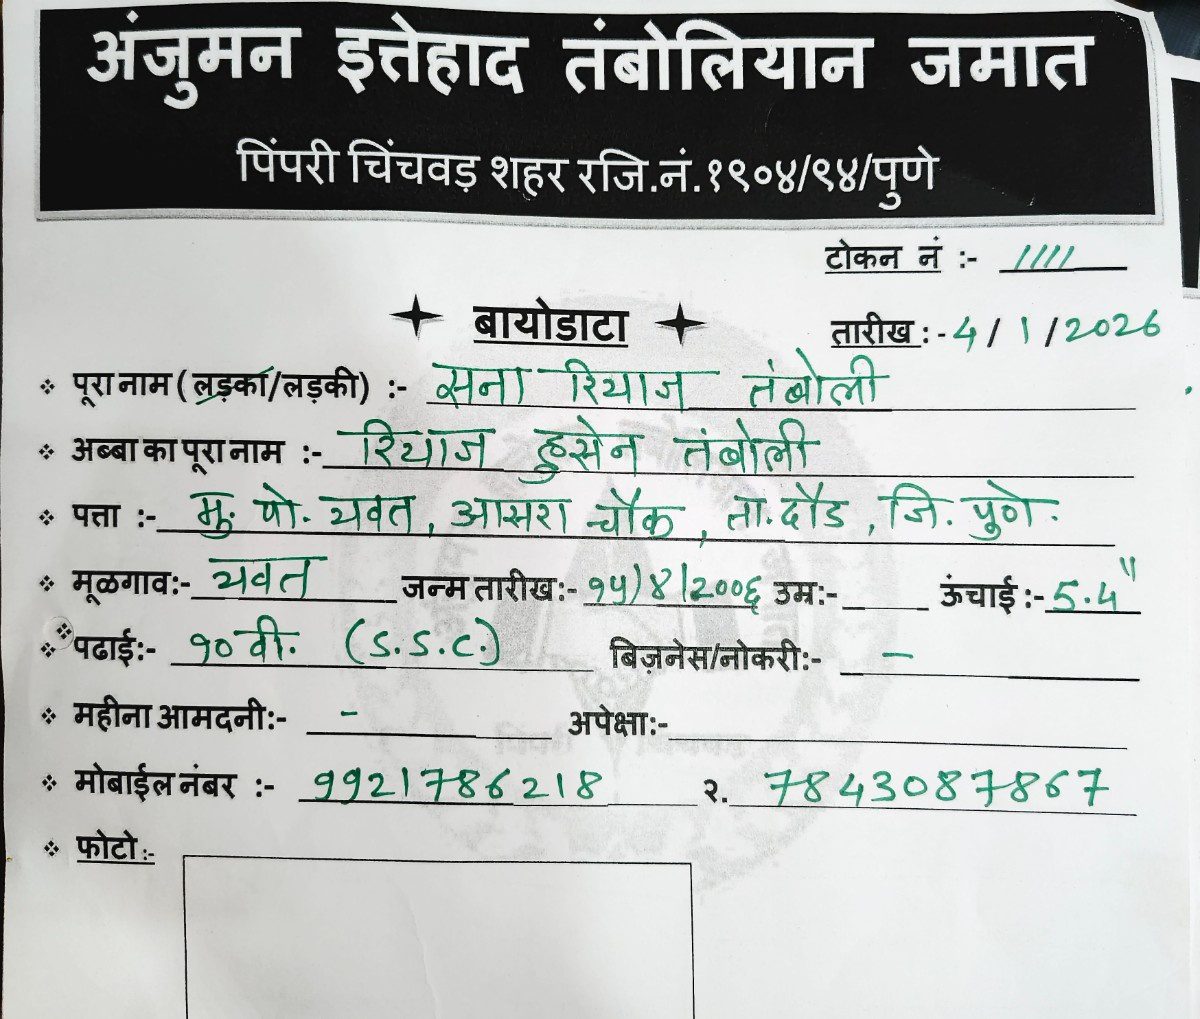 अंजुमन इत्तेहाद तंबोलियान जमात
पिंपरी चिंचवड़ शहर रजि.नं.१९०४/९४/पुणे
टोकन नं :- ////
बायोडाटा
तारीख :- 4/1/2026
पूरा नाम (लड़का/लड़की) :- सना रियाज तंबोली
अब्बा का पूरा नाम :- रियाज हुसेन तंबोली
पत्ता :- मु. पो. यवत, आसरा चौक, ता. दौंड, जि. पुणे.
मूळगाव:- यवत जन्म तारीख:- १५/४/२००६ उम्र:- ऊंचाई :- 5.4"
पढाई:- १० वी. (S.S.C.) बिज़नेस/नोकरी:- -
महीना आमदनी:- - अपेक्षा:-
मोबाईल नंबर :- 9921786218 २. 7843087867
फोटो:-